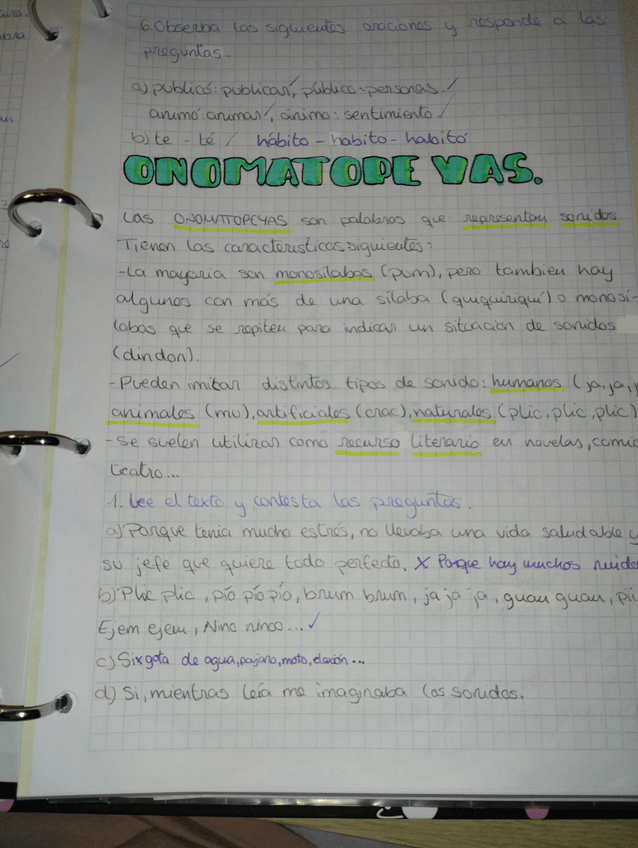 6. Observa las siguientes oraciones y responde a las
preguntas.
a) publicó: publicar, público: personas
animó: animar, ánimo: sentimiento
b) te - té / hábito - habito - habitó
ONOMATOPEYAS.
Las ONOMATOPEYAS son palabras que representan sonidos
Tienen las caracteristicas siguientes:
-La mayoria son monosílabas (pum), pero tambien hay
algunos con más de una sílaba (quiquiriquí) o monosí-
labas que se repiten para indicar un situacion de sonidos
(dindon).
-Pueden imitar distintos tipos de sonido: humanos (ja, ja, j
animales (mu), artificiales (crac), naturales (plic, plic, plic)
-Se suelen utilizar como recurso literario en novelas, comic
teatro...
1. Lee el texto y contesta las preguntas.
a) Porque tenia mucho estrés, no llevaba una vida saludable y
su jefe que quiere todo perfecto. X Porque hay muchos ruido
b) Plic plic, pío pío pío, brum brum, ja ja ja, guau guau, pii
Ejem ejem, Nino nino...
c) Si x gota de agua, pajaro, moto, claxón...
d) Si, mientras leía me imaginaba los sonidos.